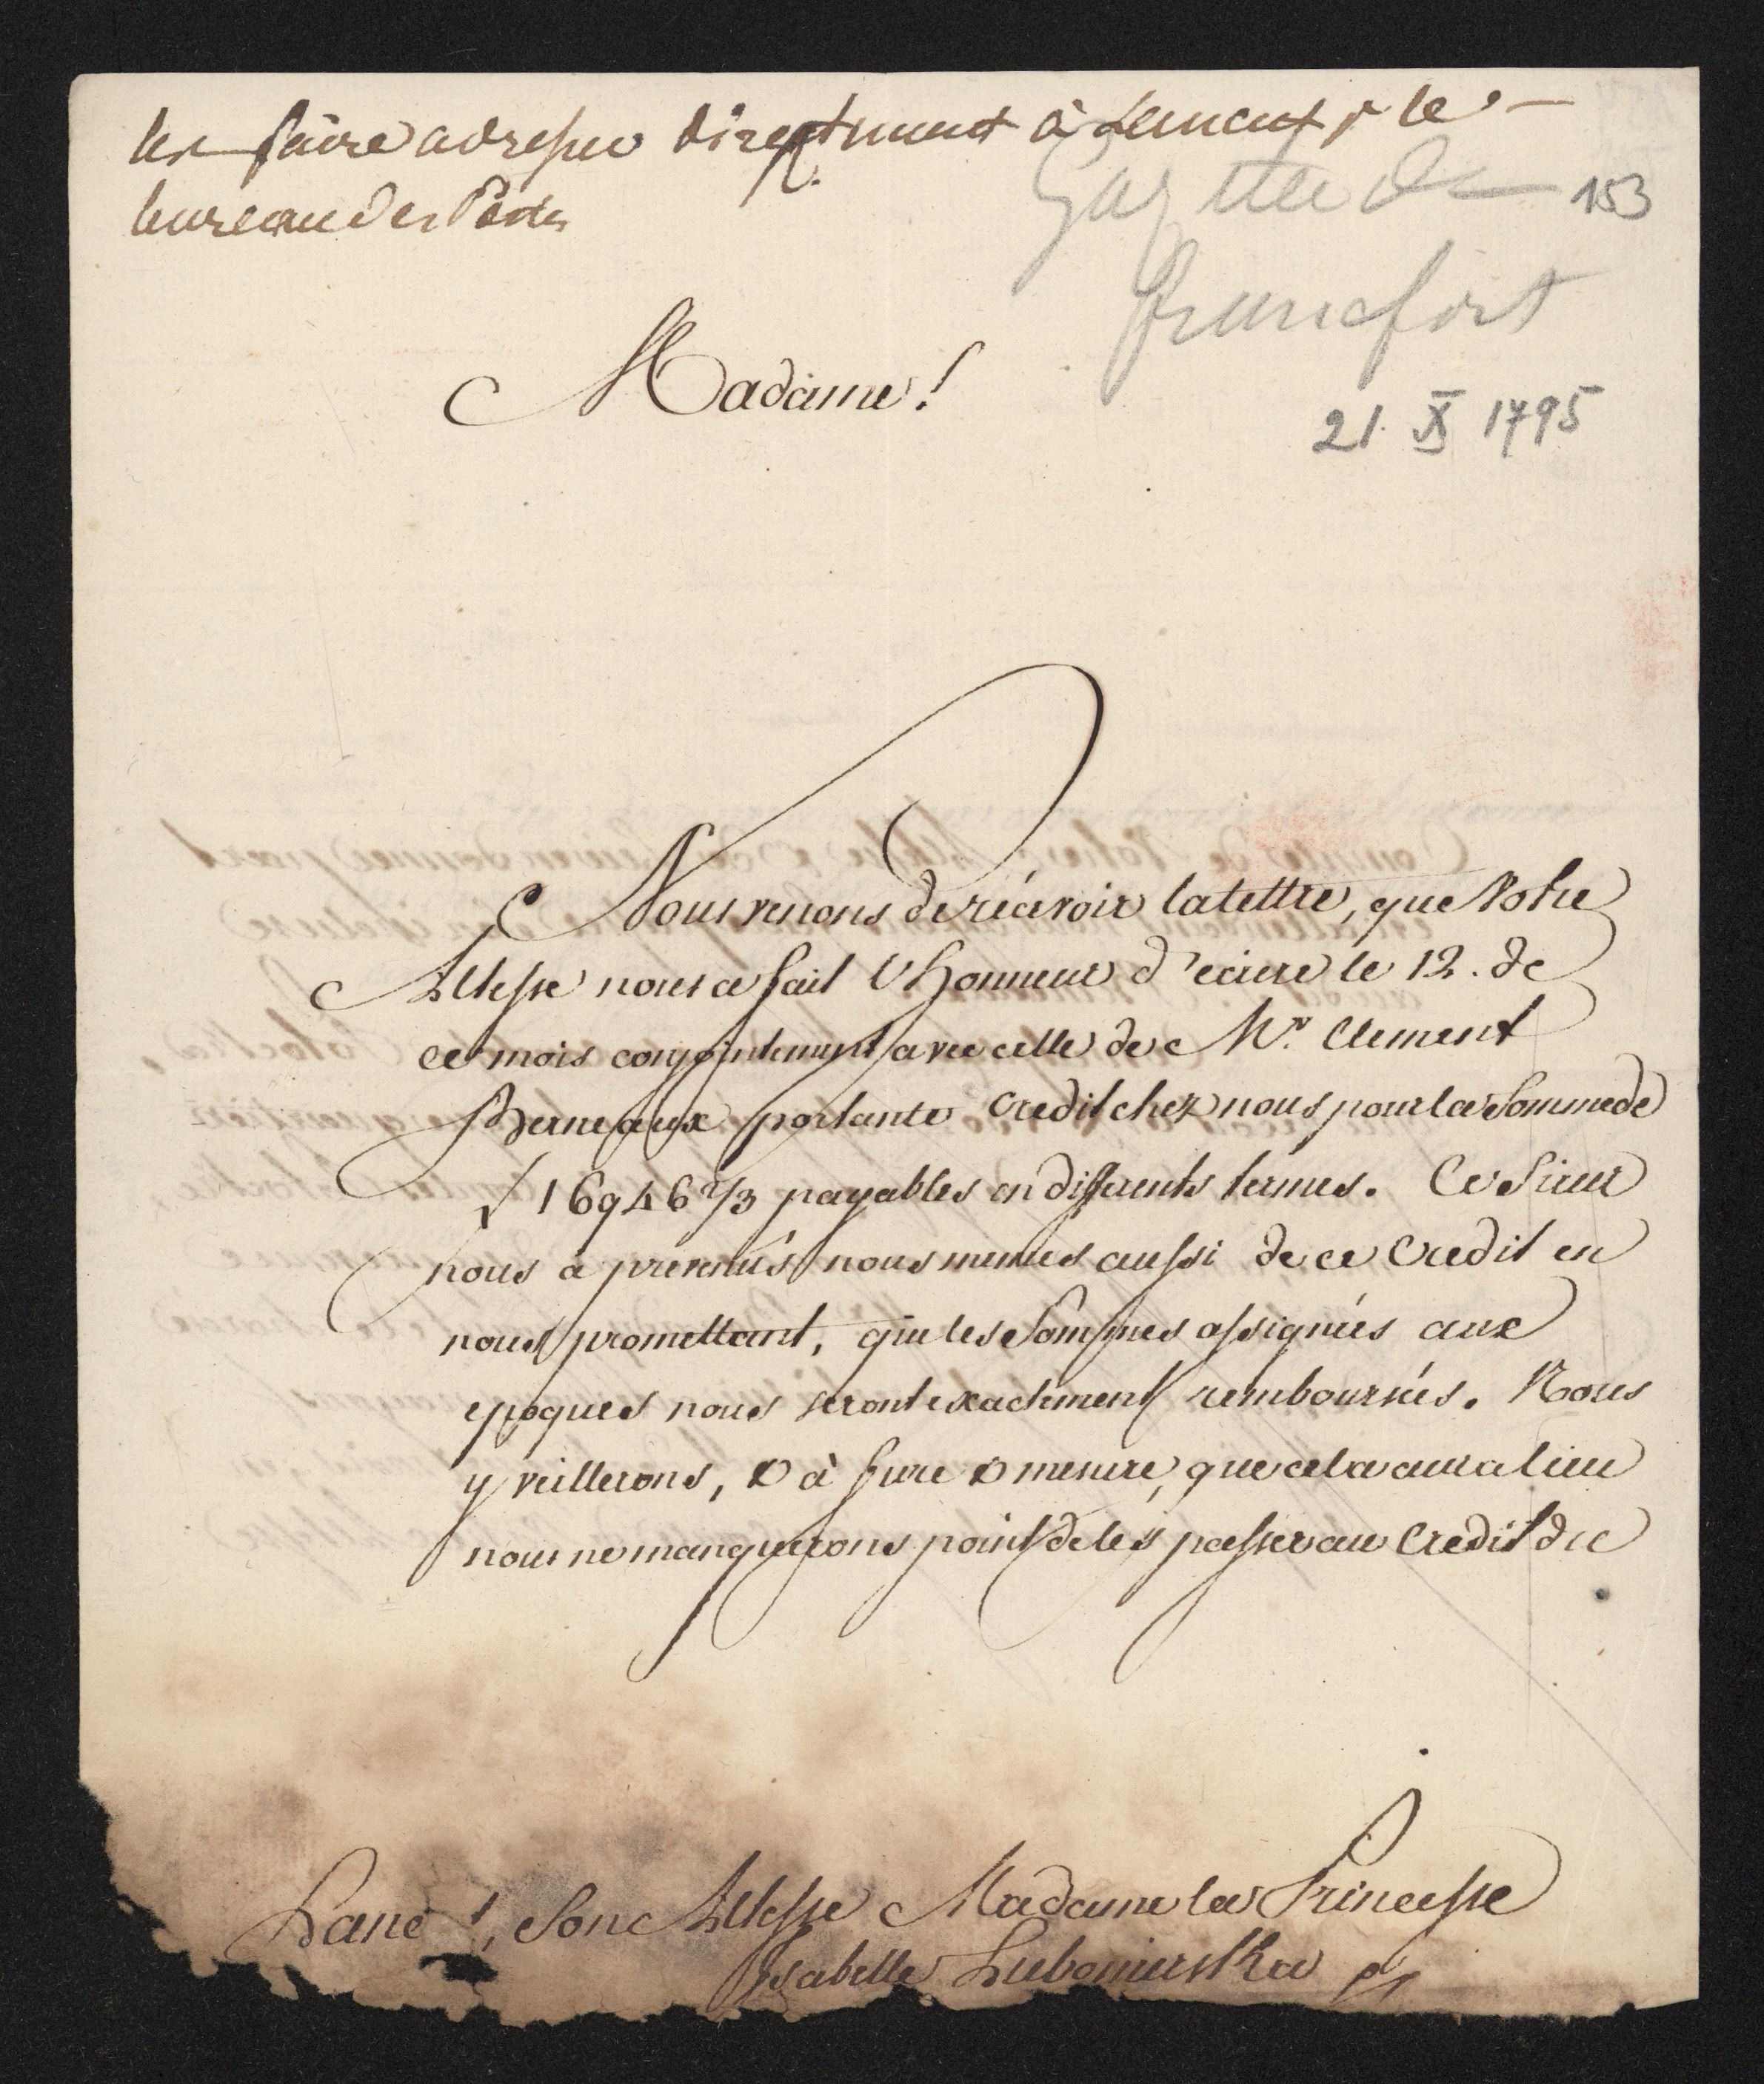 les faire adresser directement à Lemcut p le
bureau des Postes
Gazette de 153
francfort
21. X 1795
Madame!
Nous venons de récevoir la lettre, que Votre
Altesse nous a fait l'honneur d'ecrire le 12. de
ce mois conjointement avec celle de Mr. Clement
Bernaux portante credit chez nous pour la Somme de
f 16946 2/3 payables en differents termes. Ce Sieur
nous a prevenus nous memes aussi de ce Credit en
nous promettant, que les Sommes assignées aux
epoques nous seront exactement remboursées. Nous
y veillerons, & à fure & mesure, que cela aura lieu
nous ne manquerons point de les passer au Credit du
Lancut, Son Altesse Madame la Princesse
Isabelle Lubomirska